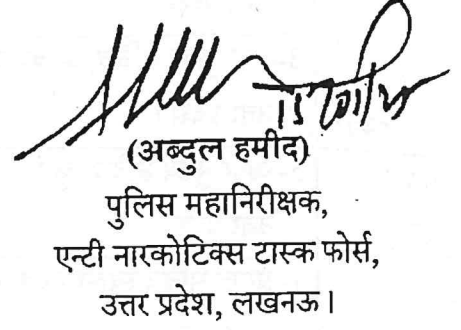 (अब्दुल हमीद)
पुलिस महानिरीक्षक,
एन्टी नारकोटिक्स टास्क फोर्स,
उत्तर प्रदेश, लखनऊ।